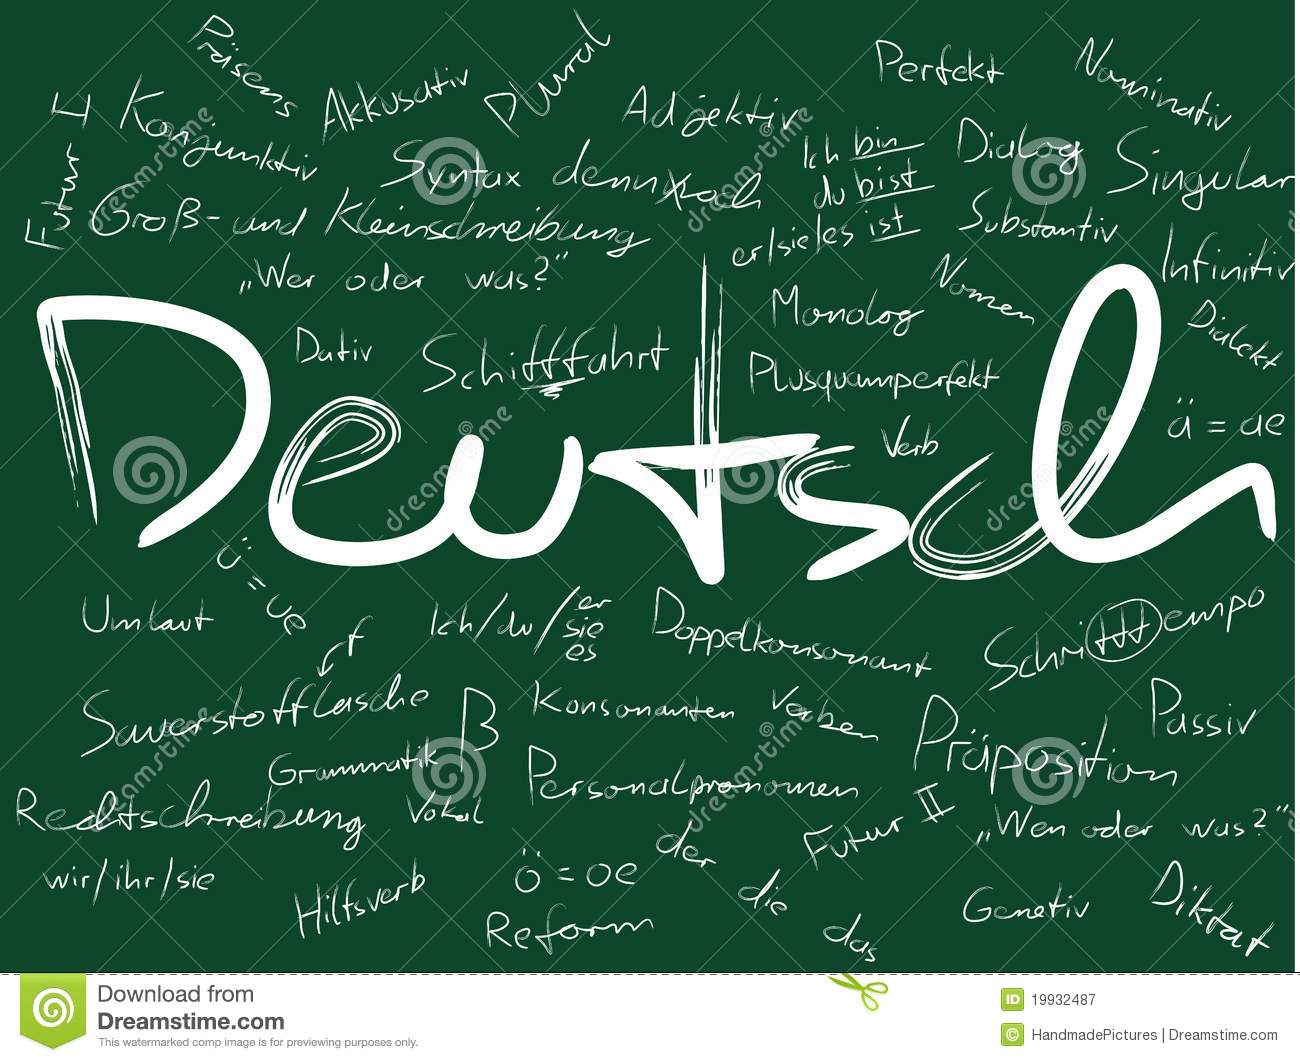 Präsens
Akkusativ
Plural
Perfekt
Nominativ
Futur I
Konjunktiv
Adjektiv
Syntax
dennoch
Ich bin
du bist
er/sie/es ist
Dialog
Singular
Groß- und Kleinschreibung
Substantiv
„Wer oder was?“
Nomen
Infinitiv
Monolog
Dialekt
Dativ
Schifffahrt
Plusquamperfekt
ä = ae
Verb
Deutsch
ü = ue
Umlaut
Ich/du/er
sie
es
Doppelkonsonant
Schritttempo
f
Sauerstofflasche
ß
Konsonanten
Verben
Präposition
Passiv
Grammatik
Personalpronomen
Rechtschreibung
Vokal
Futur II
„Wen oder was?“
wir/ihr/sie
Hilfsverb
ö = oe
der
die
das
Reform
Genetiv
Diktat
dreamstime
Download from
Dreamstime.com
This watermarked comp image is for previewing purposes only.
ID 19932487
© HandmadePictures | Dreamstime.com